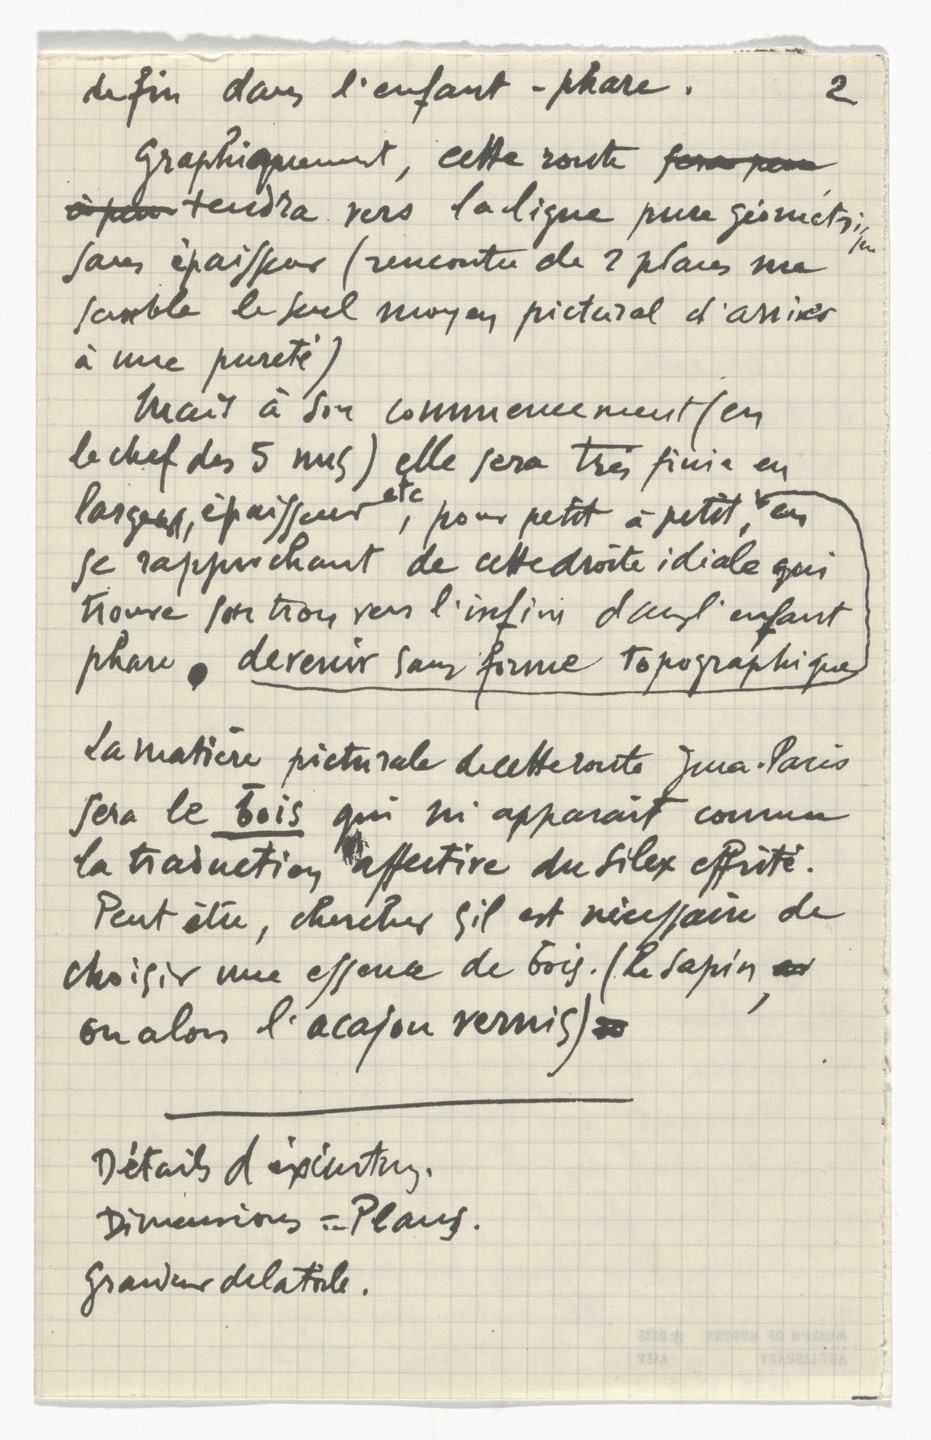 de fin dans l'enfant-phare. 2
Graphiquement, cette route
tendra vers la ligne pure géométrique
sans épaisseur (rencontre de 2 plans me
semble le seul moyen pictural d'arriver
à une pureté)
Mais à son commencement (en
le chef des 5 nus) elle sera très finie en
largeur, épaisseur etc, pour petit à petit, en
se rapprochant de cette droite idéale qui
trouve son trou vers l'infini dans l'enfant
phare. devenir sans forme topographique
La matière picturale de cette route Jura-Paris
sera le bois qui m'apparait comme
la traduction affective du silex effrité.
Peut être, chercher s'il est nécessaire de
choisir une essence de bois. (le sapin,
ou alors l'acajou vernis)
Détails d'éxécution.
Dimensions = Plans.
Grandeur de la toile.
MUSEUM OF MODERN
ART LIBRARY